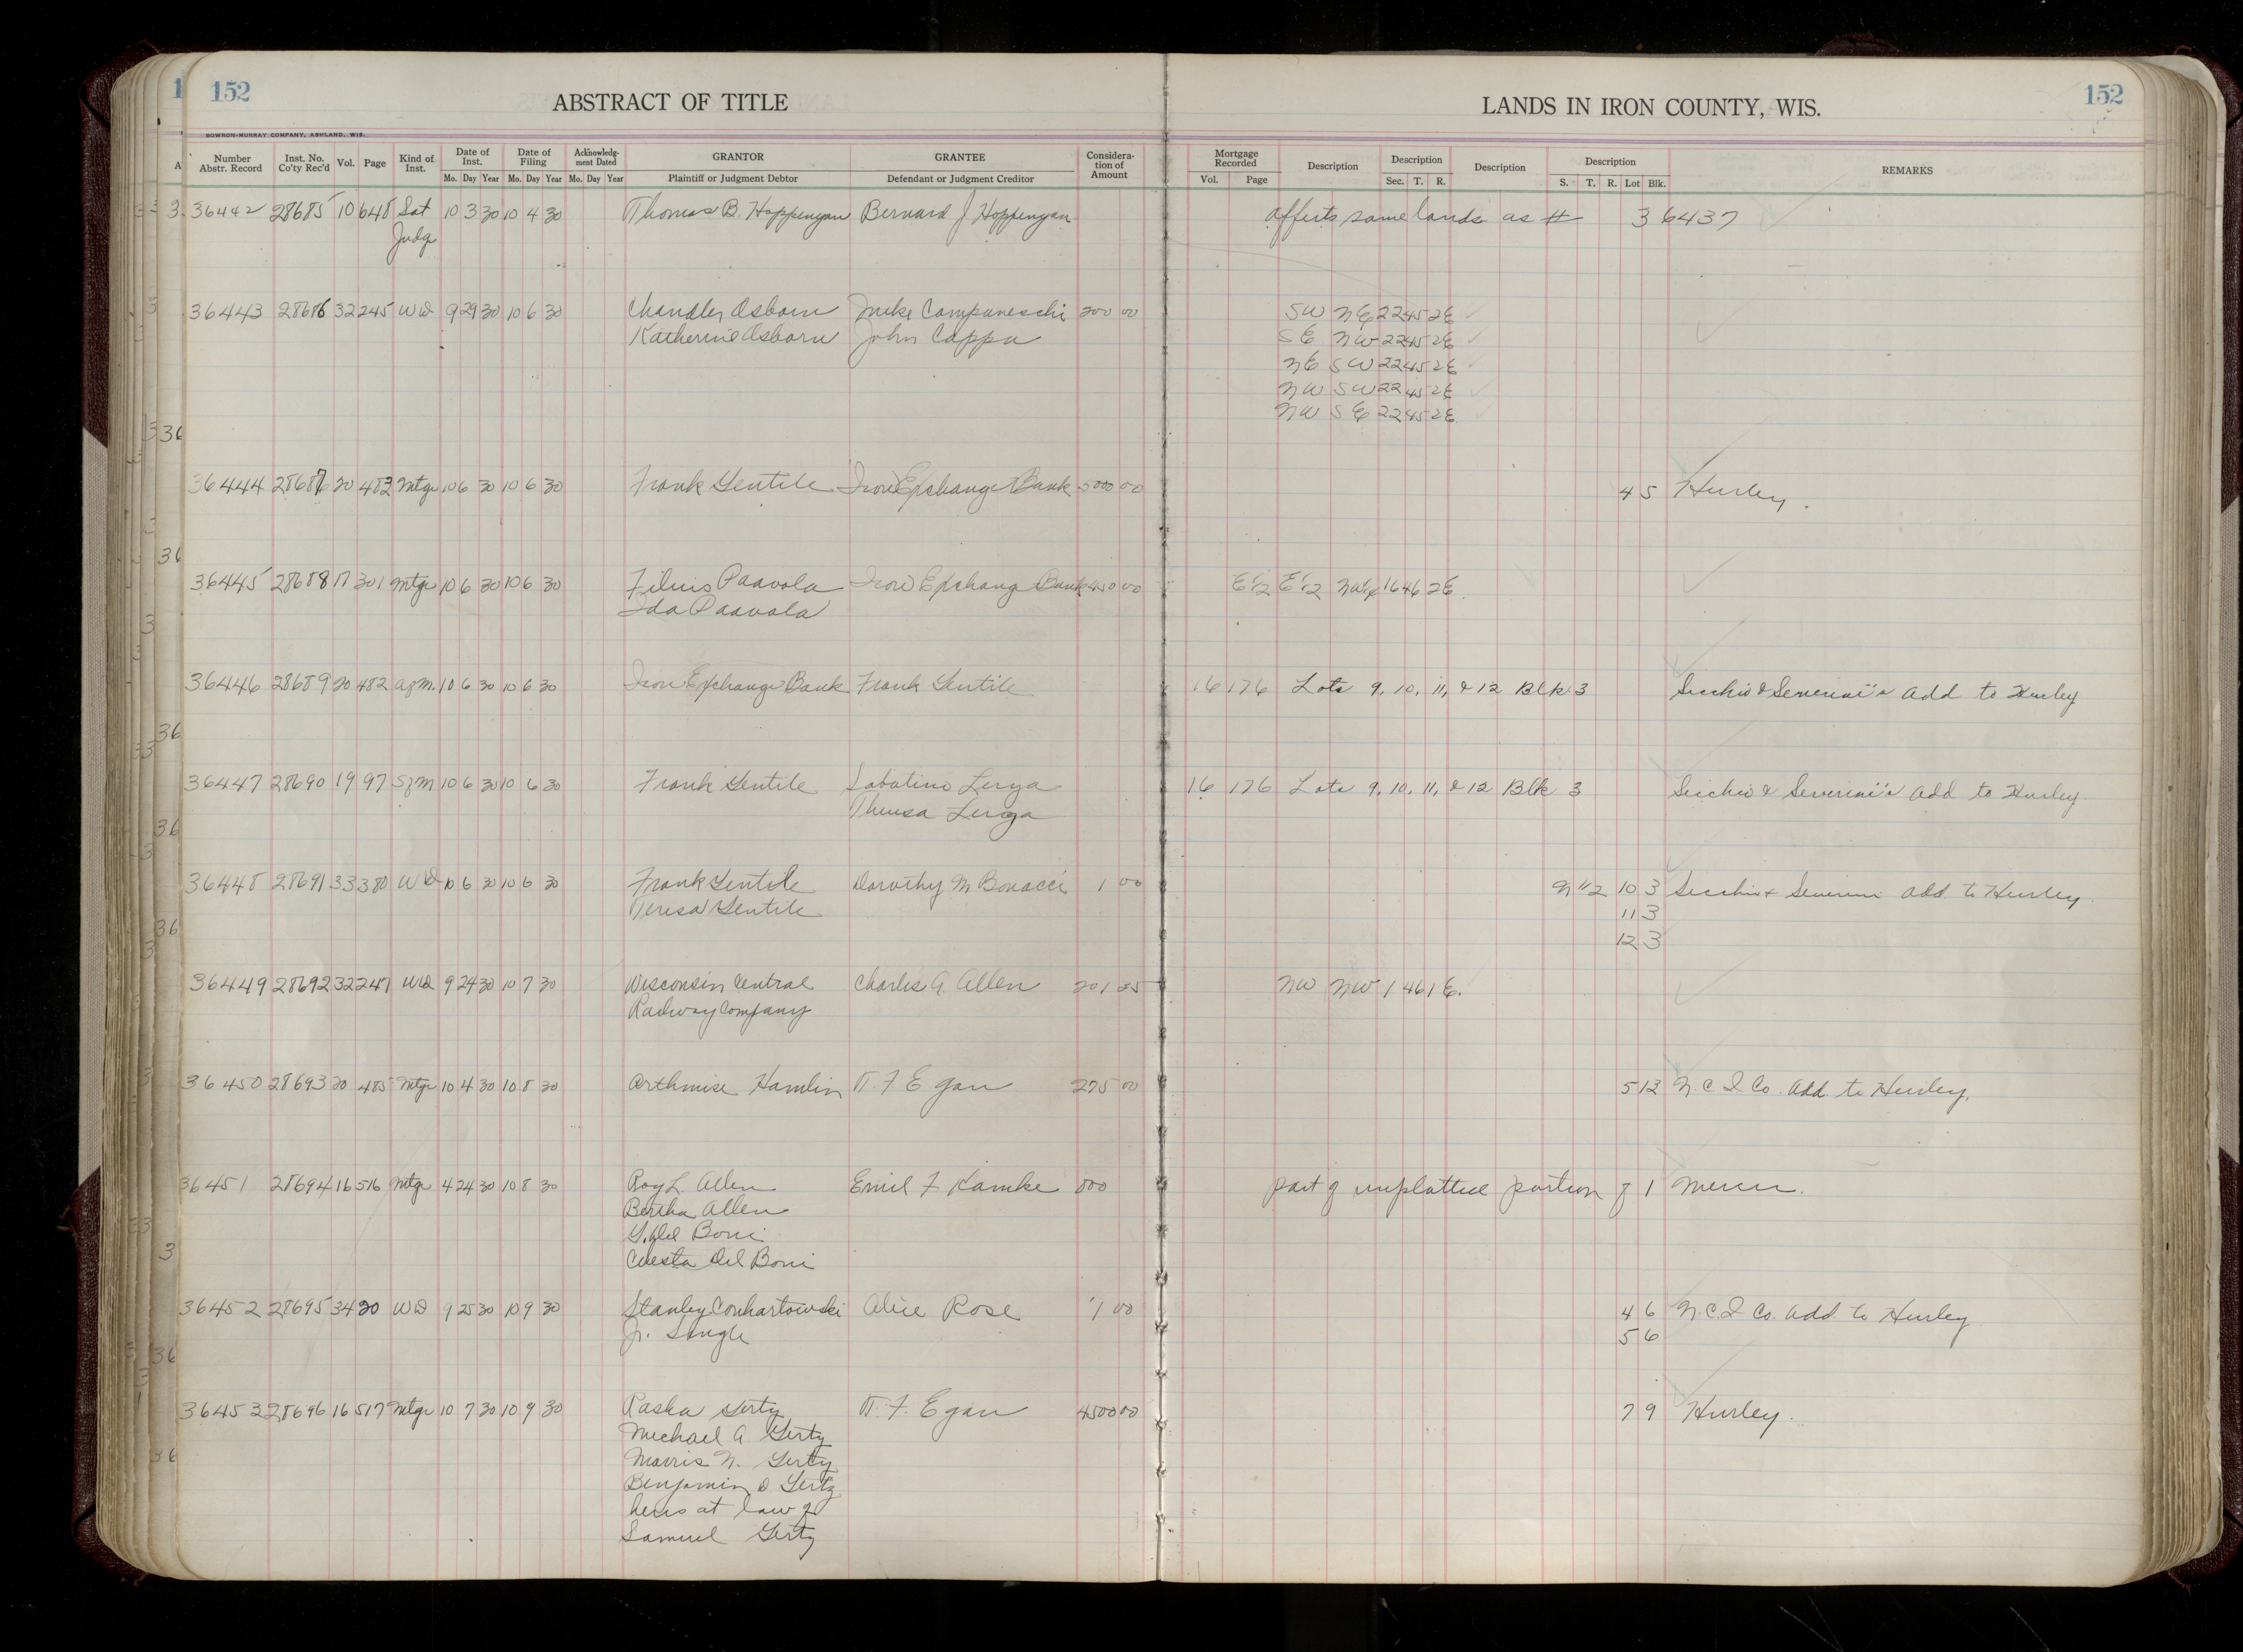 152
ABSTRACT OF TITLE
LANDS IN IRON COUNTY, WIS.
152
BOWRON-MURRAY COMPANY, ASHLAND, WIS.
Number Abstr. Record Inst. No. Co'ty Rec'd Vol. Page Kind of Inst. Date of Inst. Date of Filing Acknowledgment Dated GRANTOR GRANTEE Consideration of Amount Mortgage Recorded Description Description Description Description REMARKS
Mo. Day Year Mo. Day Year Mo. Day Year Plaintiff or Judgment Debtor Defendant or Judgment Creditor Vol. Page Sec. T. R. S. T. R. Lot Blk.
36442 28685 10 648 Sat 10 3 30 10 4 30 Thomas B. Hoppenyan Bernard J Hoppenyan affects same lands as # 36437
Judg
36443 28686 32 245 WD 9 29 30 10 6 30 Chandler Osborn Mike Campaneschi 200 00 SW NE 22 45 2E
Katherine Osborn John Cappa SE NW 22 45 2E
NE SW 22 45 2E
NW SW 22 45 2E
NW SE 22 45 2E
36444 28687 20 482 Mtge 10 6 30 10 6 30 Frank Gentile Iron Exchange Bank 5000 00 4 5 Hurley.
36445 28688 17 301 Mtge 10 6 30 10 6 30 Paavola Iron Exchange Bank 450 00 E 1/2 E 1/2 NW 16 46 2E.
Ida Paavola
36446 28689 20 482 10 6 30 10 6 30 Iron Exchange Bank Frank Gentile 16 176 Lots 9, 10, 11, & 12 Blk 3 Secchio & Severini's Add to Hurley
36447 28690 19 97 10 6 30 10 6 30 Frank Gentile Sabatino Lerga 16 176 Lots 9, 10, 11, & 12 Blk 3 Secchio & Severini's Add to Hurley
Theresa Lerga
36448 28691 33 380 WD 10 6 30 10 6 30 Frank Gentile Dorothy M Bonacci 1 00 N 1/2 10 3 Secchio & Severini Add. to Hurley.
Teresa Gentile 11 3
12 3
36449 28692 32 247 WD 9 24 30 10 7 30 Wisconsin Central Charles A. Allen 201 25 NW NW 1 46 1E.
Railway Company
36450 28693 20 485 Mtge 10 4 30 10 8 30 Arthmise Hamlin T. F Egan 275 00 5 12 N. C I Co. Add. to Hurley.
36451 28694 16 516 Mtge 4 24 30 10 8 30 Roy L Allen Emil F Kamke part of unplatted portion of 1 Mercer.
Bertha Allen
Del Boni
Del Boni
36452 28695 34 20 WD 9 25 30 10 9 30 Stanley Alice Rose 1 00 4 6 N. C. I Co. Add. to Hurley
Jr. Single 5 6
36453 28696 16 517 Mtge 10 7 30 10 9 30 Raska Gertz T. F. Egan 4500 00 7 9 Hurley.
Michael A Gertz
Morris N. Gertz
Benjamin D Gertz
heirs at law of
Samuel Gertz